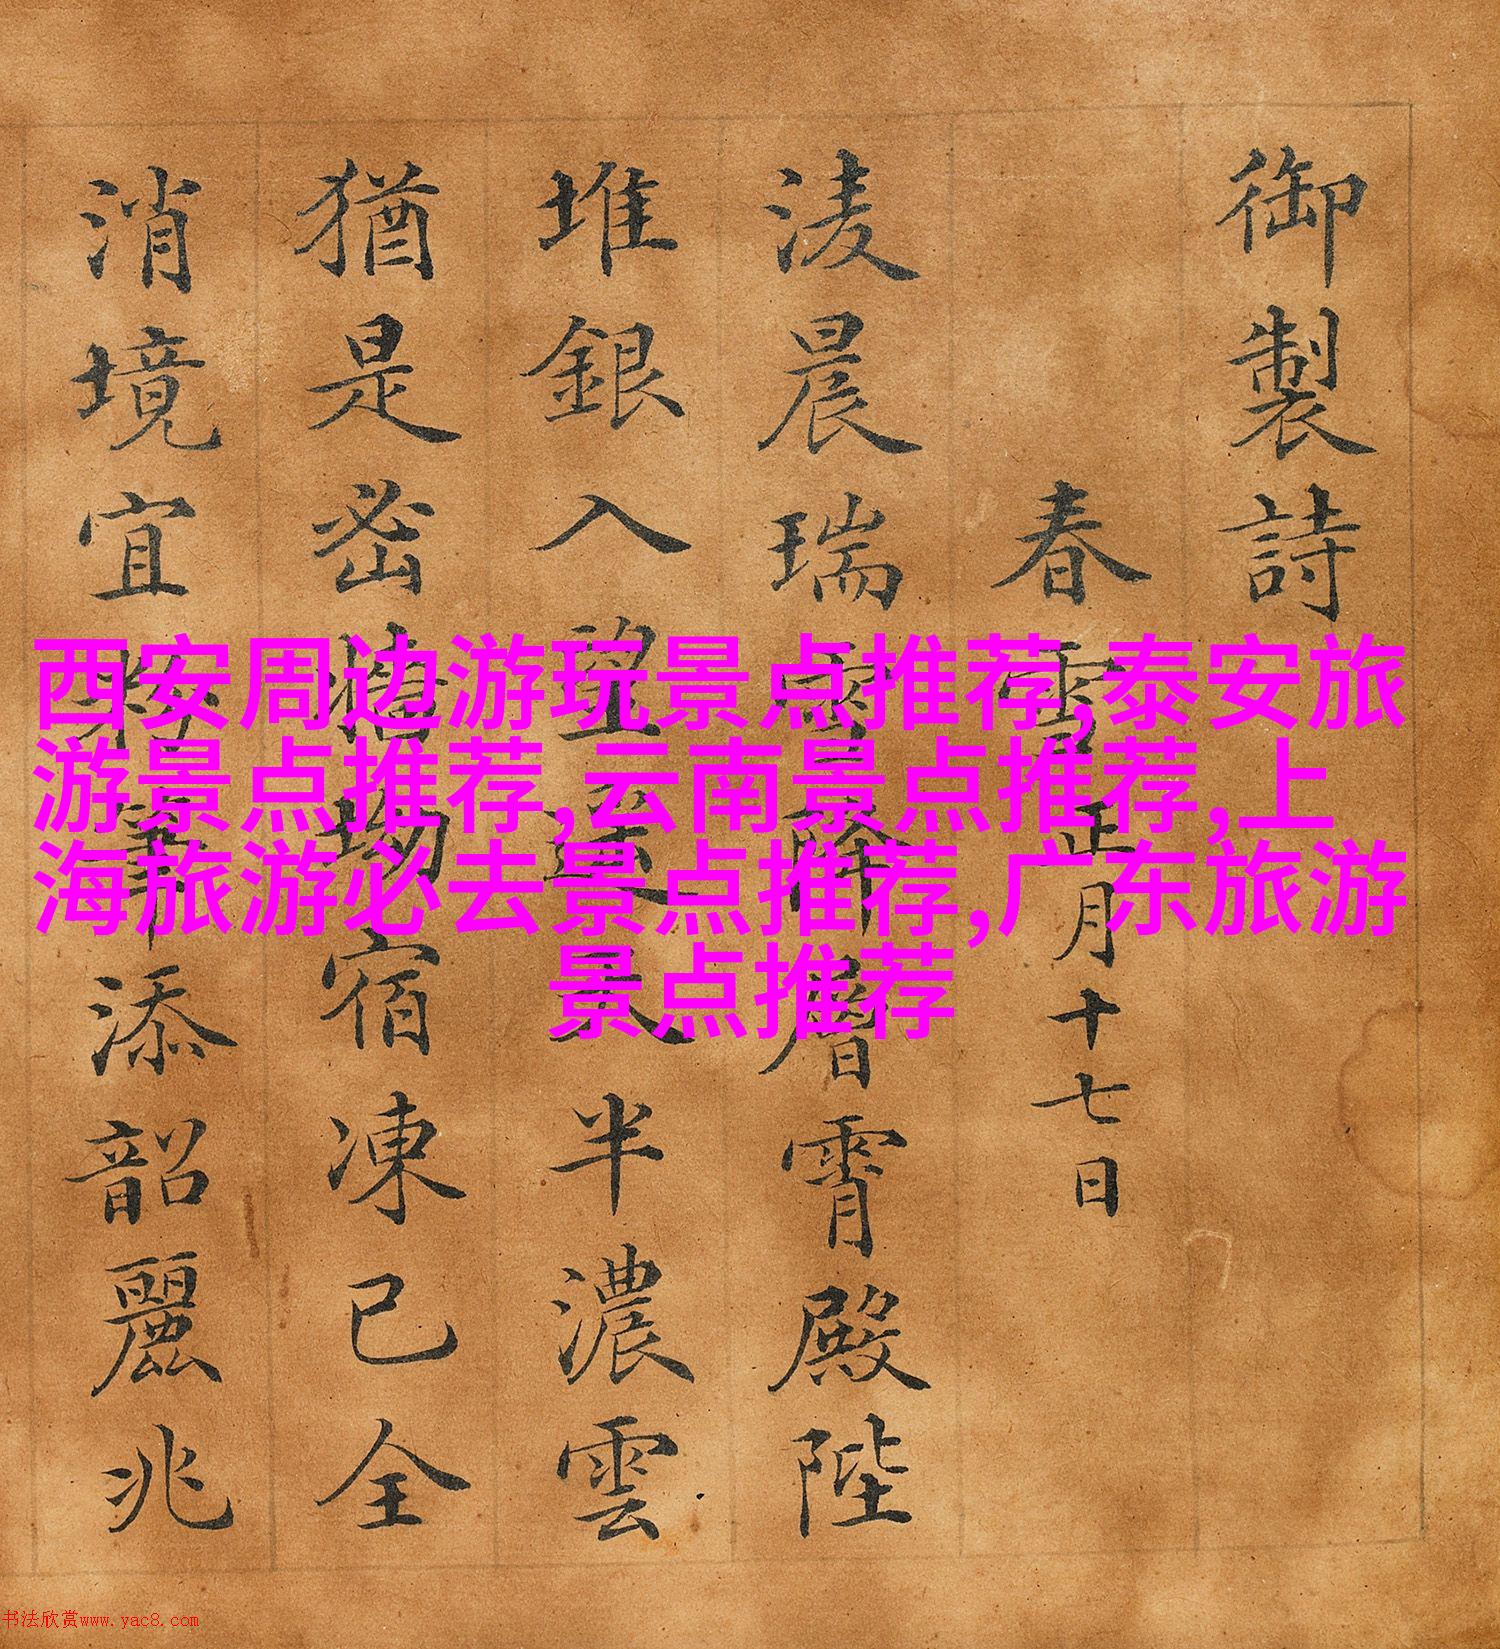 御製詩
春雪正月十七日
淩晨瑞雪降層霄殿陛
堆銀入望遥夜半濃雲
猶是密牆坳宿凍已全
消境宜點筆添韶麗兆
西安周边游玩景点推荐,泰安旅
游景点推荐,云南景点推荐,上
海旅游必去景点推荐,广东旅游
景点推荐
书法欣赏www.yac8.com